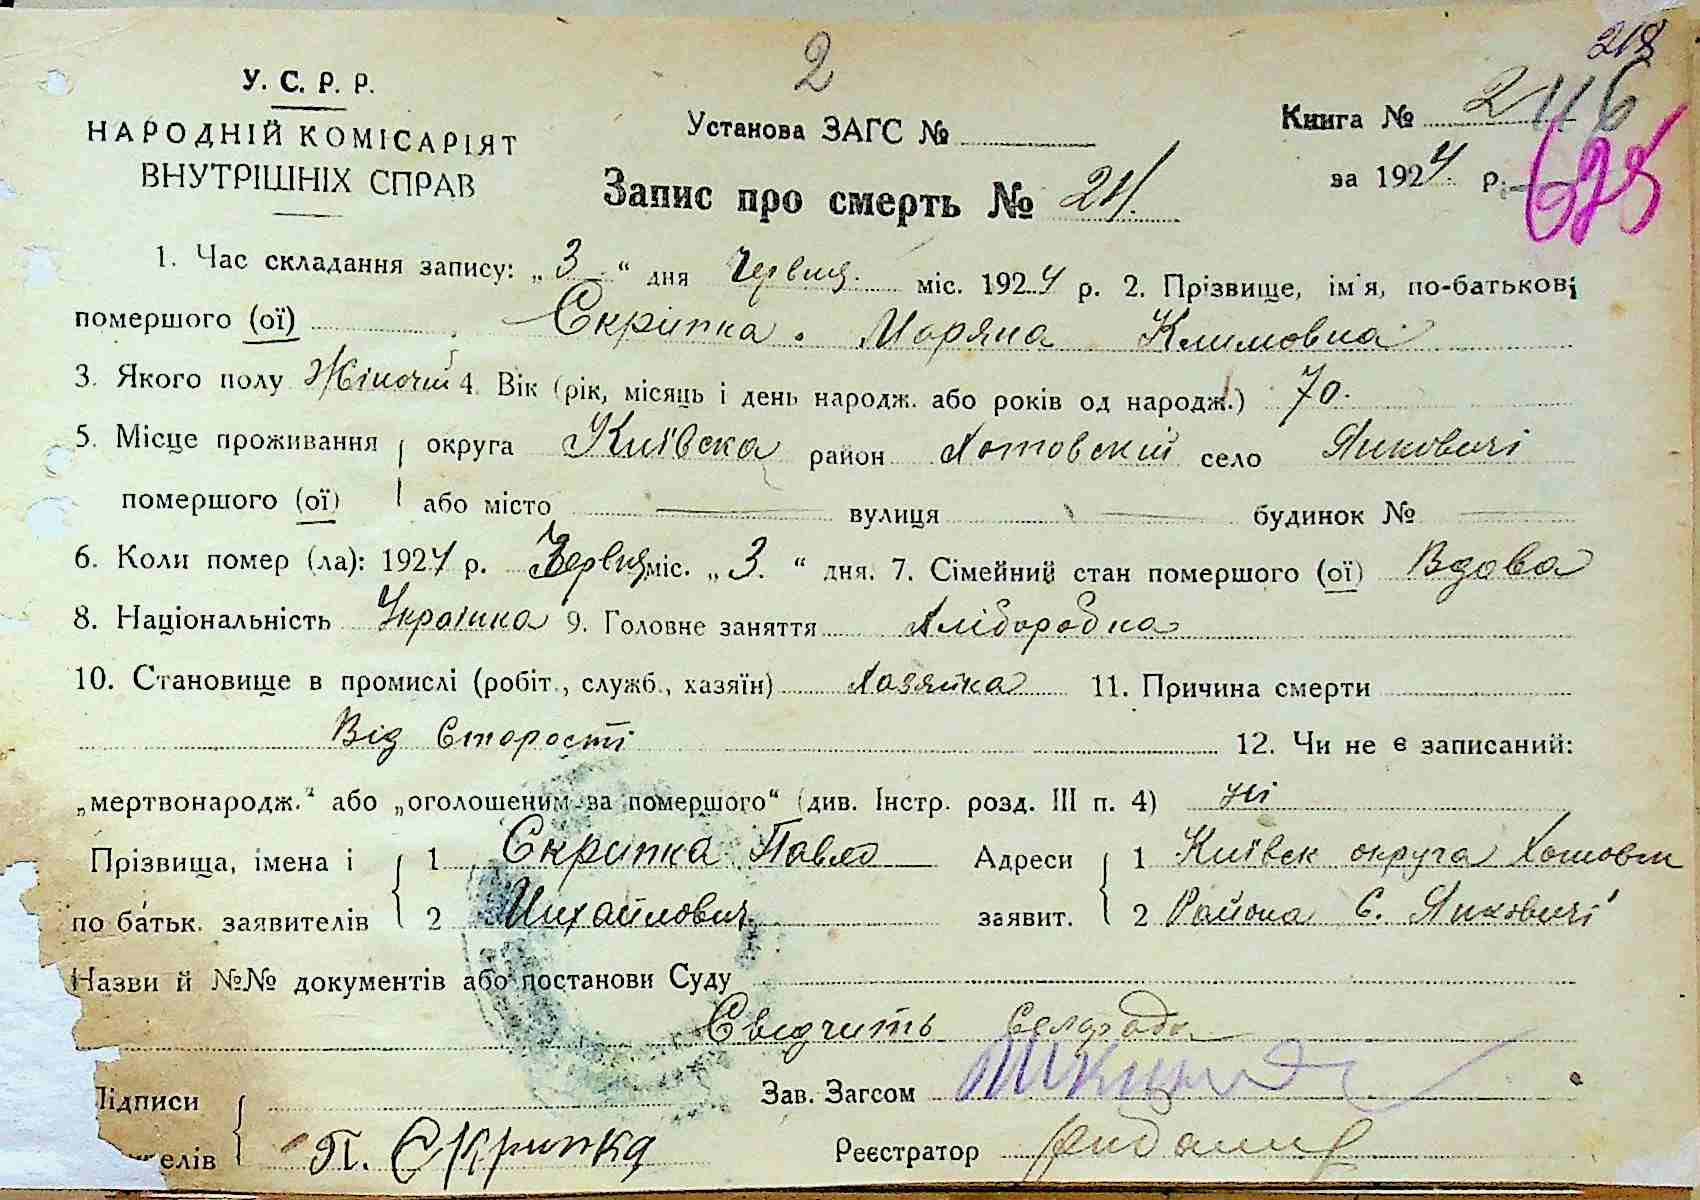 218
2
У. С. Р. Р.
НАРОДНІЙ КОМІСАРІЯТ
ВНУТРІШНІХ СПРАВ
Установа ЗАГС №
Книга № 2 116
за 1924 р. 628
Запис про смерть № 24.
1. Час складання запису: „ 3 “ дня Червця. міс. 1924 р. 2. Прізвище, ім'я, по-батькові
помершого (ої) Скрипка. Моряна Климовна
3. Якого полу Жіночій 4. Вік (рік, місяць і день народж. або років од народж.) 70.
5. Місце проживання округа Київска район Хотовский село Янковичі
помершого (ої) або місто — вулиця — будинок № —
6. Коли помер (ла): 1924 р. Червця міс. „ 3. “ дня. 7. Сімейний стан помершого (ої) Вдова
8. Національність Українка 9. Головне заняття Хлібородка
10. Становище в промислі (робіт., служб., хазяїн) Хазяйка 11. Причина смерти
Від Старості 12. Чи не є записаний:
„мертвонародж.“ або „оголошеним за помершого“ (див. Інстр. розд. III п. 4) ні
Прізвища, імена і 1 Скрипка Павло Адреси 1 Київск округа Хотовск
по батьк. заявителів 2 Михайлович заявит. 2 Района С. Янковичі
Назви й №№ документів або постанови Суду
Свідчить Сельрада
Підписи Зав. Загсом
елів П. Скрипка Реєстратор